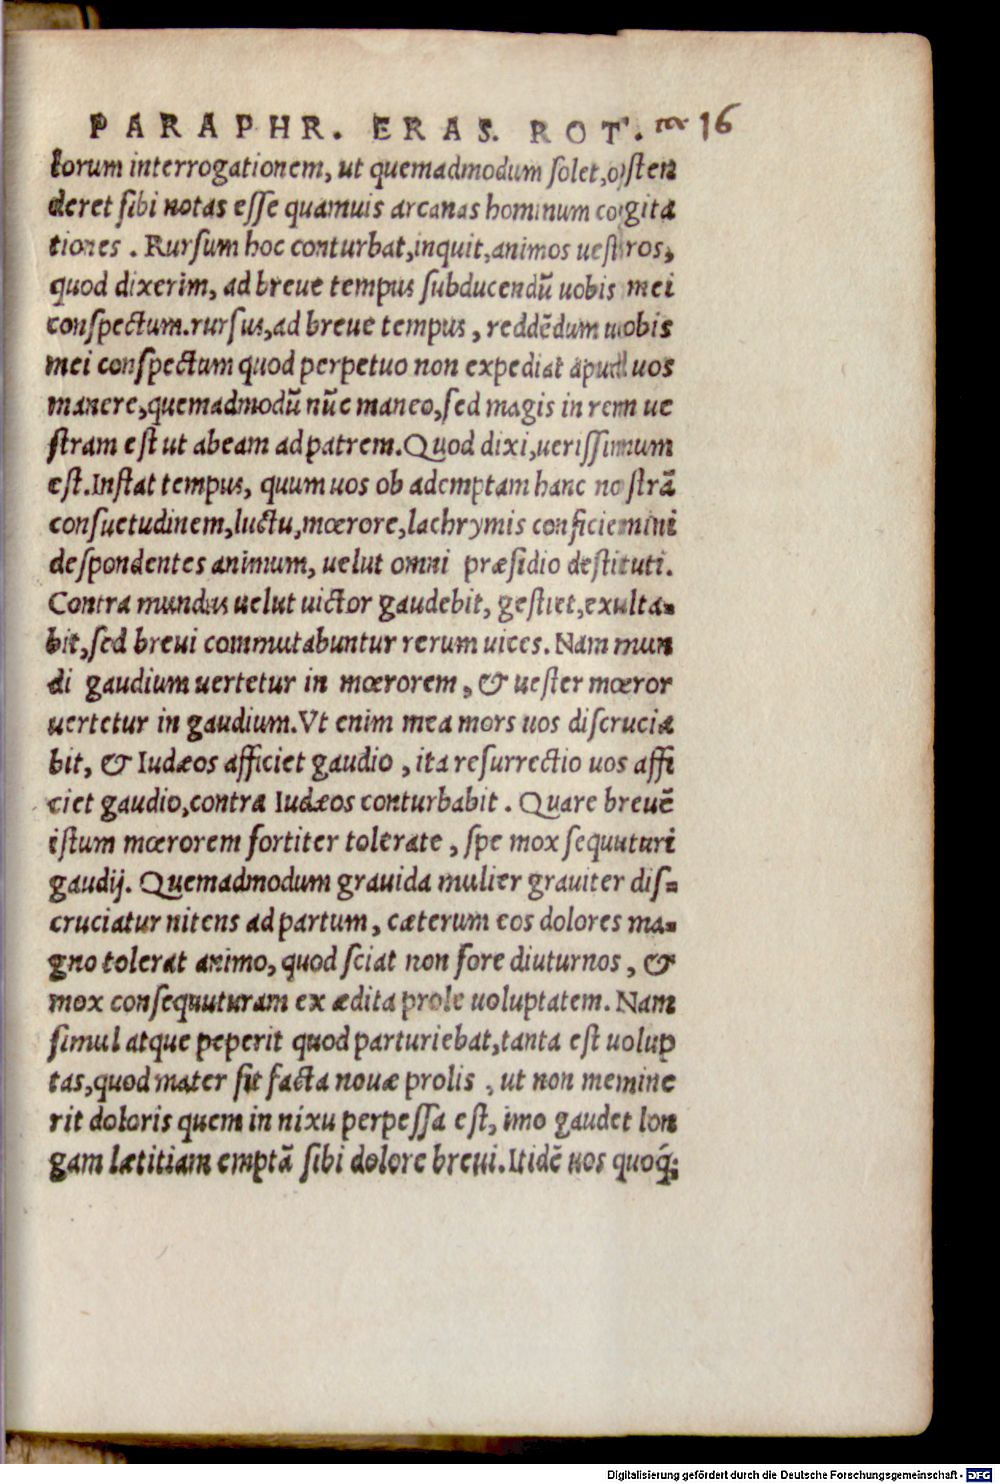 PARAPHR. ERAS. ROT. 16
lorum interrogationem, ut quemadmodum solet, osten
deret sibi notas esse quamuis arcanas hominum cogita
tiones. Rursum hoc conturbat, inquit, animos uestros,
quod dixerim, ad breue tempus subducendū uobis mei
conspectum. rursus, ad breue tempus, reddēdum uobis
mei conspectum quod perpetuo non expediat apud uos
manere, quemadmodū nūc maneo, sed magis in rem ue
stram est ut abeam ad patrem. Quod dixi, uerissimum
est. Instat tempus, quum uos ob ademptam hanc nostrā
consuetudinem, luctu, mœrore, lachrymis conficiemini
despondentes animum, uelut omni præsidio destituti.
Contra mundus uelut uictor gaudebit, gestiet, exulta-
bit, sed breui commutabuntur rerum uices. Nam mun
di gaudium uertetur in mœrorem, & uester mœror
uertetur in gaudium. Vt enim mea mors uos discrucia
bit, & Iudæos afficiet gaudio, ita resurrectio uos affi
ciet gaudio, contra Iudæos conturbabit. Quare breuē
istum mœrorem fortiter tolerate, spe mox sequuturi
gaudij. Quemadmodum grauida mulier grauiter dis-
cruciatur nitens ad partum, cæterum eos dolores ma-
gno tolerat animo, quod sciat non fore diuturnos, &
mox consequuturam ex ædita prole uoluptatem. Nam
simul atque peperit quod parturiebat, tanta est uolup
tas, quod mater sit facta nouæ prolis, ut non memine
rit doloris quem in nixu perpessa est, imo gaudet lon
gam lætitiam emptā sibi dolore breui. Itidē uos quoq;
Digitalisierung gefördert durch die Deutsche Forschungsgemeinschaft - DFG